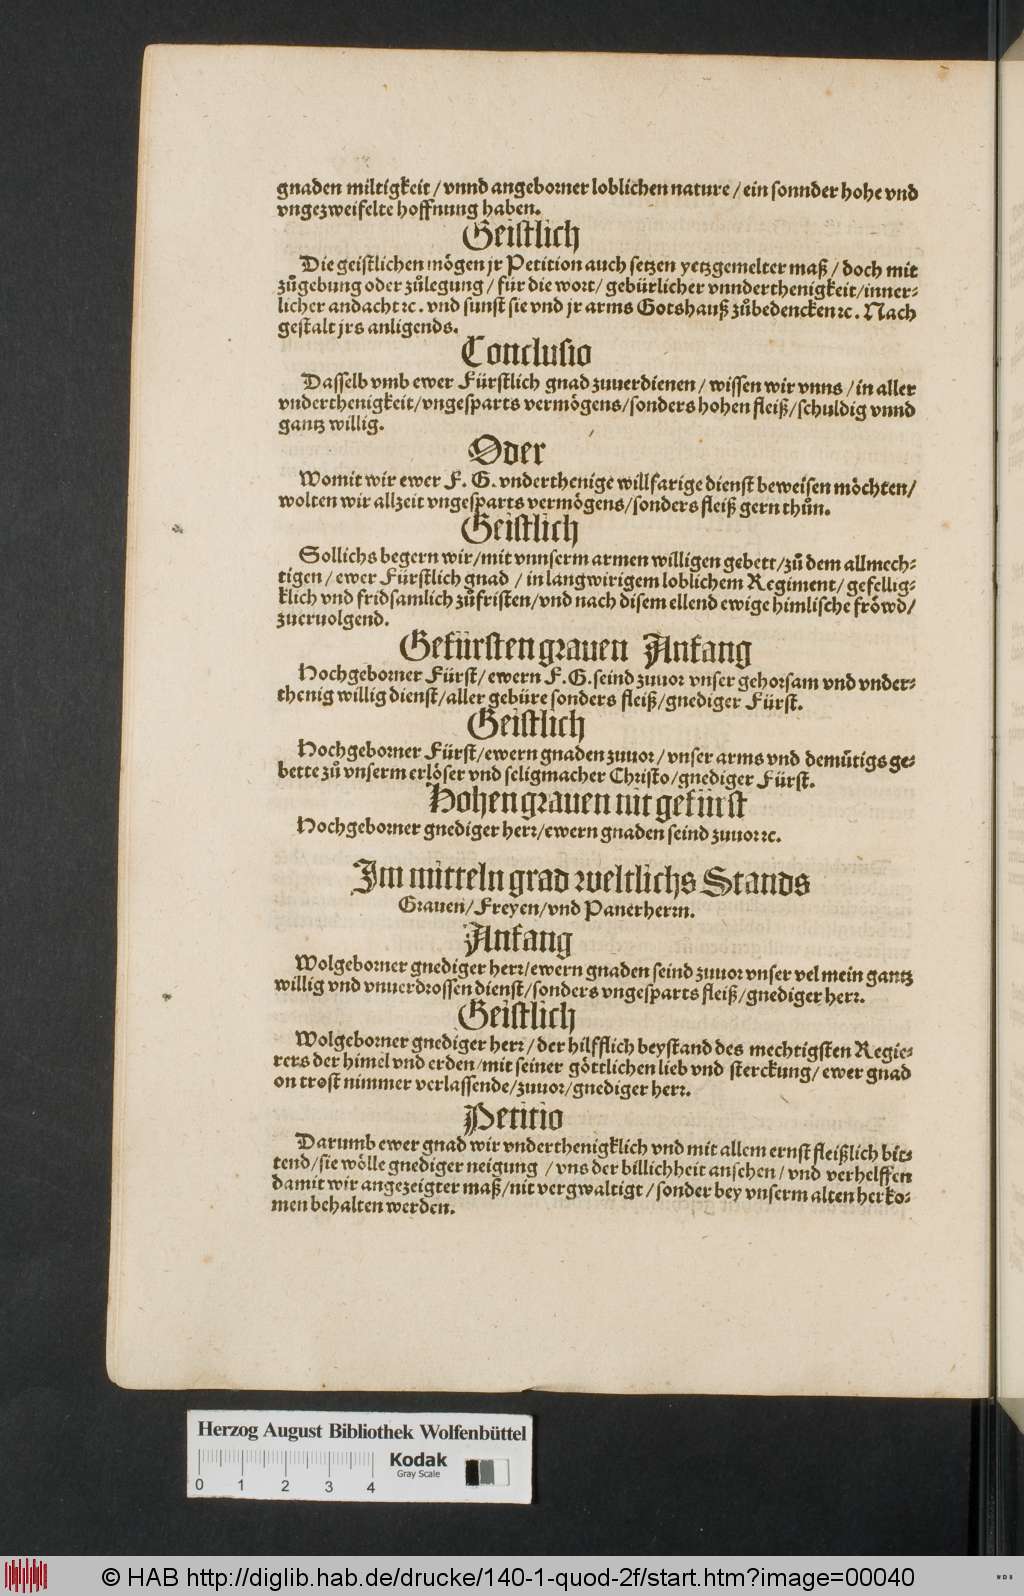 gnaden miltigkeit / vnnd angeborner loblichen nature / ein sonnder hohe vnd
vngezweifelte hoffnung haben.
Geistlich
Die geistlichen mögen jr Petition auch setzen yetzgemelter maß / doch mit
zůgebung oder zůlegung / für die wort / gebürlicher vnnderthenigkeit / inner⸗
licher andacht ꝛc. vnd sunst sie vnd jr arms Gotshauß zůbedencken ꝛc. Nach
gestalt jrs anligends.
Conclusio
Dasselb vmb ewer Fürstlich gnad zuuerdienen / wissen wir vnns / in aller
vnderthenigkeit / vngesparts vermögens / sonders hohen fleiß / schuldig vnnd
gantz willig.
Oder
Womit wir ewer F. G. vnderthenige willfarige dienst beweisen möchten /
wolten wir allzeit vngesparts vermögens / sonders fleiß gern thůn.
Geistlich
Sollichs begern wir / mit vnnserm armen willigen gebett / zů dem allmech⸗
tigen / ewer Fürstlich gnad / in langwirigem loblichem Regiment / gefellig⸗
klich vnd fridsamlich zůfristen / vnd nach disem ellend ewige himlische fröwd /
zueruolgend.
Gefürsten grauen Anfang
Hochgeborner Fürst / ewern F. G. seind zuuor vnser gehorsam vnd vnder⸗
thenig willig dienst / aller gebüre sonders fleiß / gnediger Fürst.
Geistlich
Hochgeborner Fürst / ewern gnaden zuuor / vnser arms vnd demůtigs ge⸗
bette zů vnserm erlöser vnd seligmacher Christo / gnediger Fürst.
Hohen grauen nit gefürst
Hochgeborner gnediger herr / ewern gnaden seind zuuor ꝛc.
Im mitteln grad weltlichs Stands
Grauen / Freyen / vnd Panerherrn.
Anfang
Wolgeborner gnediger herr / ewern gnaden seind zuuor vnser vel mein gantz
willig vnd vnuerdrossen dienst / sonders vngesparts fleiß / gnediger herr.
Geistlich
Wolgeborner gnediger herr / der hilfflich beystand des mechtigsten Regie⸗
rers der himel vnd erden / mit seiner göttlichen lieb vnd sterckung / ewer gnad
on trost nimmer verlassende / zuuor / gnediger herr.
Petitio
Darumb ewer gnad wir vnderthenigklich vnd mit allem ernst fleißlich bit⸗
tend / sie wölle gnediger neigung / vns der billichheit ansehen / vnd verhelffen
damit wir angezeigter maß / nit vergwaltigt / sonder bey vnserm alten herko⸗
men behalten werden.
Herzog August Bibliothek Wolfenbüttel
Kodak
Gray Scale
0 1 2 3 4
© HAB http://diglib.hab.de/drucke/140-1-quod-2f/start.htm?image=00040